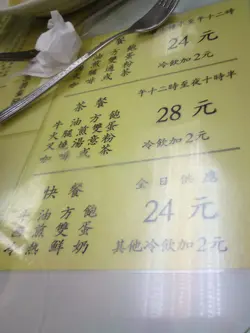 時至午十二時
24 元
冷飲加2元
茶餐
午十二時至夜十時半
牛油方飽
火腿煎雙蛋
叉燒湯意粉
咖啡或茶
28 元
冷飲加2元
快餐
全日供應
牛油方飽
煎雙蛋
熱鮮奶
24 元
其他冷飲加2元